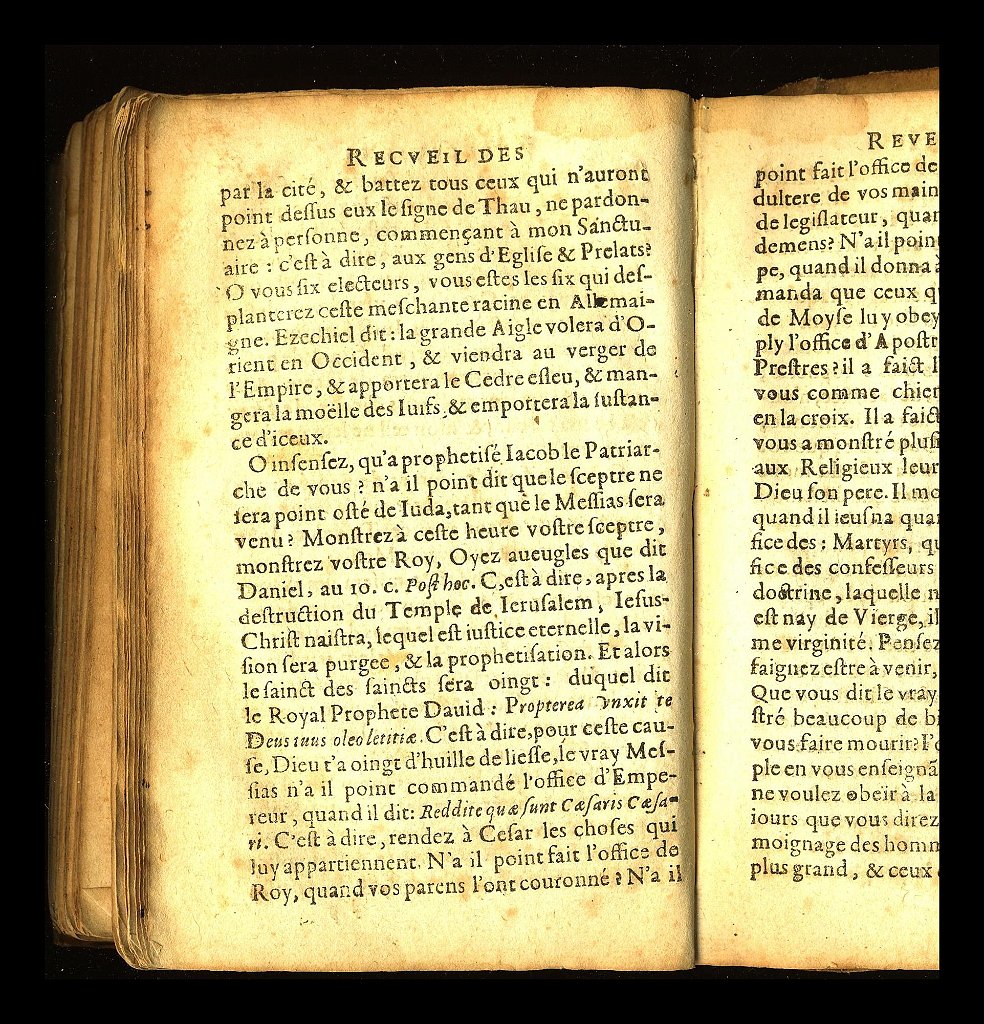 RECVEIL DES
par la cité, & battez tous ceux qui n'auront
point dessus eux le signe de Thau, ne pardon-
nez à personne, commençant à mon Sanctu-
aire : c'est à dire, aux gens d'Eglise & Prelats?
O vous six electeurs, vous estes les six qui des-
planterez ceste meschante racine en Allemai-
gne. Ezechiel dit : la grande Aigle volera d'O-
rient en Occident, & viendra au verger de
l'Empire, & apportera le Cedre esleu, & man-
gera la moëlle des Iuifs, & emportera la sustan-
ce d'iceux.
O insensez, qu'a prophetisé Iacob le Patriar-
che de vous ? n'a il point dit que le sceptre ne
sera point osté de Iuda, tant que le Messias sera
venu ? Monstrez à ceste heure vostre sceptre,
monstrez vostre Roy, Oyez aueugles que dit
Daniel, au 10. c. Post hoc. C,est à dire, apres la
destruction du Temple de Ierusalem, Iesus-
Christ naistra, lequel est iustice eternelle, la vi-
sion sera purgee, & la prophetisation. Et alors
le sainct des saincts sera oingt : duquel dit
le Royal Prophete Dauid : Propterea vnxit te
Deus tuus oleo letitiæ. C'est à dire, pour ceste cau-
se, Dieu t'a oingt d'huille de liesse, le vray Mes-
sias n'a il point commandé l'office d'Empe-
reur, quand il dit: Reddite quæ sunt Cæsaris Cæsa-
ri. C'est à dire, rendez à Cesar les choses qui
luy appartiennent. N'a il point fait l'office de
Roy, quand vos parens l'ont couronné ? N'a il
REVE
point fait l'office de
dultere de vos main
de legislateur, quan
demens? N'a il poin
pe, quand il donna à
manda que ceux q
de Moyse luy obey
ply l'office d'Apostr
Prestres ? il a faict l
vous comme chier
en la croix. Il a faict
vous a monstré plusi
aux Religieux leur
Dieu son pere. Il mo
quand il ieusna quar
fice des : Martyrs, qu
fice des confesseurs
doctrine, laquelle n
est nay de Vierge, il
me virginité. Pensez
faignez estre à venir,
Que vous dit le vray
stré beaucoup de bi
vous faire mourir?
ple en vous enseignã
ne voulez obeïr à la
iours que vous direz
moignage des homm
plus grand, & ceux